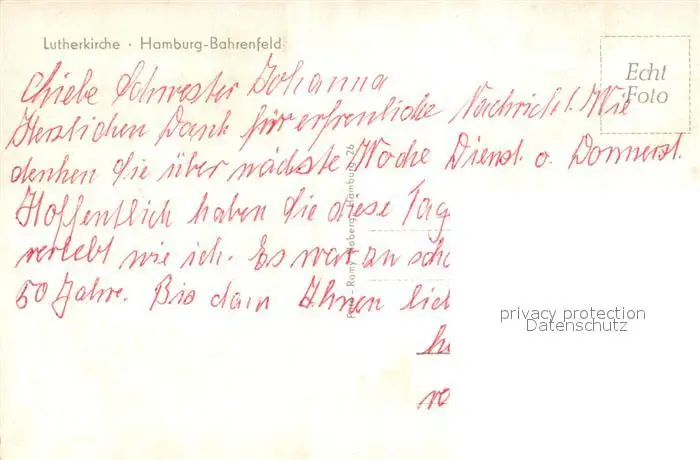 Lutherkirche · Hamburg-Bahrenfeld
Echt
Foto
Liebe Schwester Johanna
Herzlichen Dank für erfreuliche Nachricht! Wie
denken Sie über nächste Woche Dienst. o. Donnerst.
Hoffentlich haben Sie diese Tag
verlebt wie ich. Es war zu schö
50 Jahre. Bis dann Ihnen lieb
Hamburg 26
privacy protection
Datenschutz